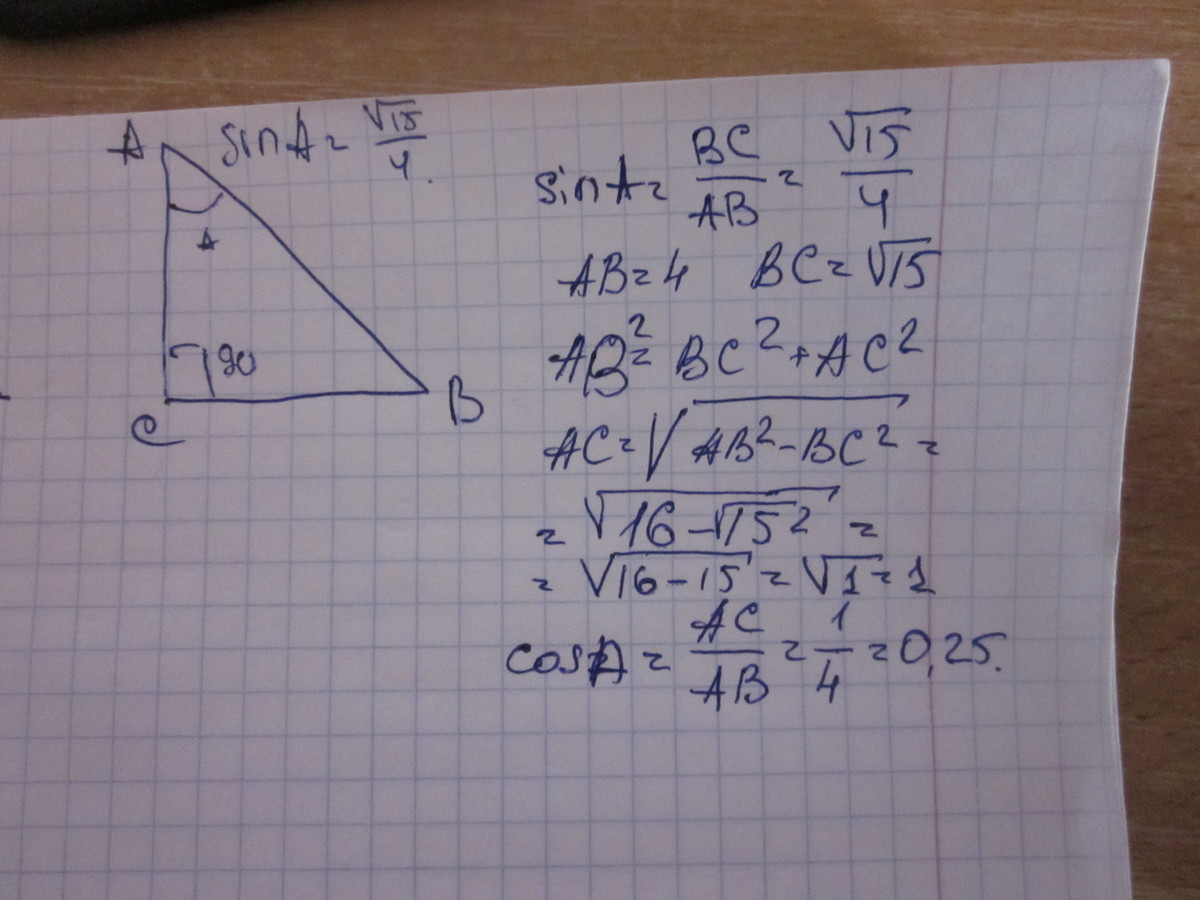 A sinA = √15/4.
A
90
C B
sinA = BC/AB = √15/4
AB = 4 BC = √15
AB² = BC² + AC²
AC = √(AB² - BC²) =
= √(16 - √15²) =
= √(16 - 15) = √1 = 1
cosA = AC/AB = 1/4 = 0,25.